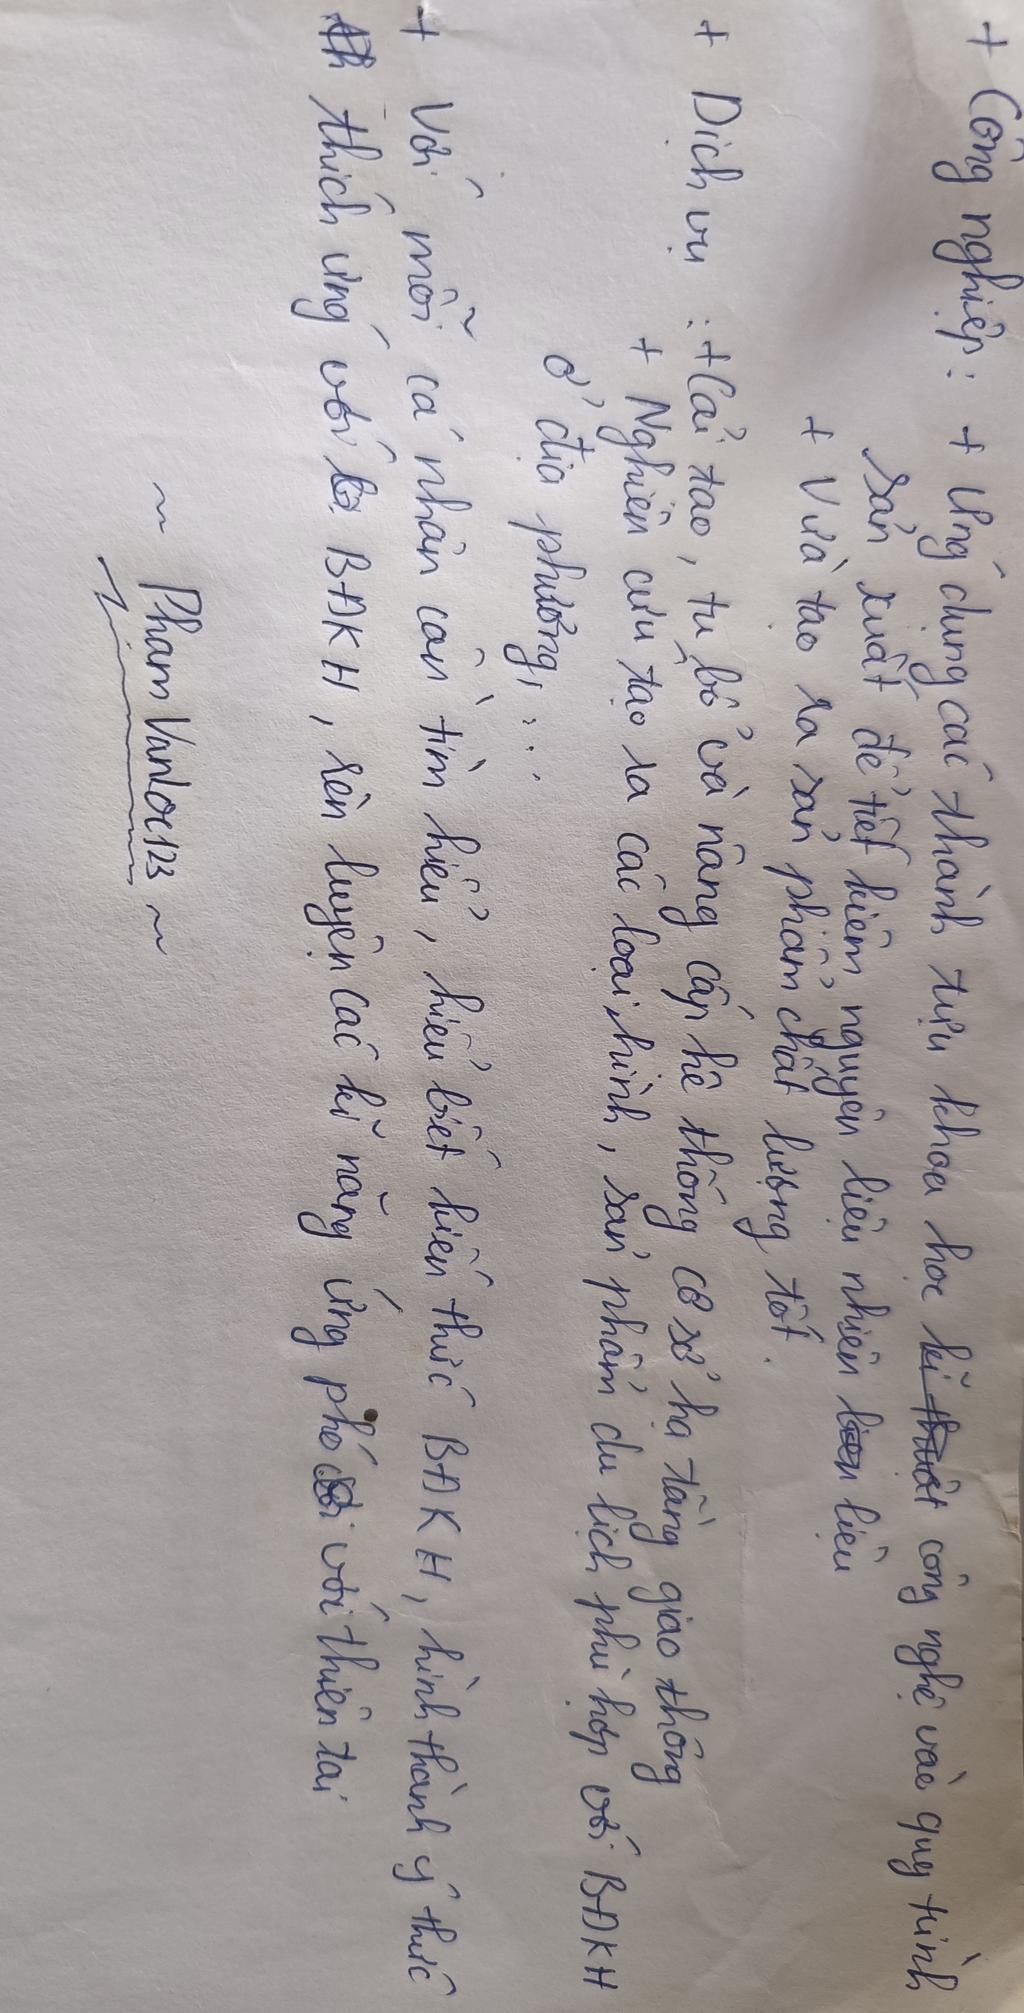 + Công nghiệp: + Ứng dụng các thành tựu khoa học kĩ thuật công nghệ vào quy trình
sản xuất để tiết kiệm nguyên liệu nhiên liệu
+ Vừa tạo ra sản phẩm chất lượng tốt.
+ Dịch vụ : + Cải tạo, tu bổ và nâng cấp hệ thống cơ sở hạ tầng giao thông
+ Nghiên cứu tạo ra các loại hình, sản phẩm du lịch phù hợp với BĐKH
ở địa phương; ...
+ Với mỗi cá nhân cần tìm hiểu, hiểu biết kiến thức BĐKH, hình thành ý thức
thích ứng với BĐKH, rèn luyện các kĩ năng ứng phó với thiên tai
~ Pham Vanloc123 ~